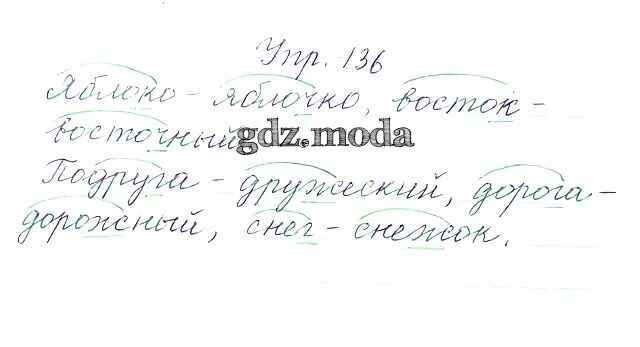 Упр. 136
Яблоко - яблочко, восток -
восточный
gdz.moda
Подруга - дружеский, дорога -
дорожный, снег - снежок.